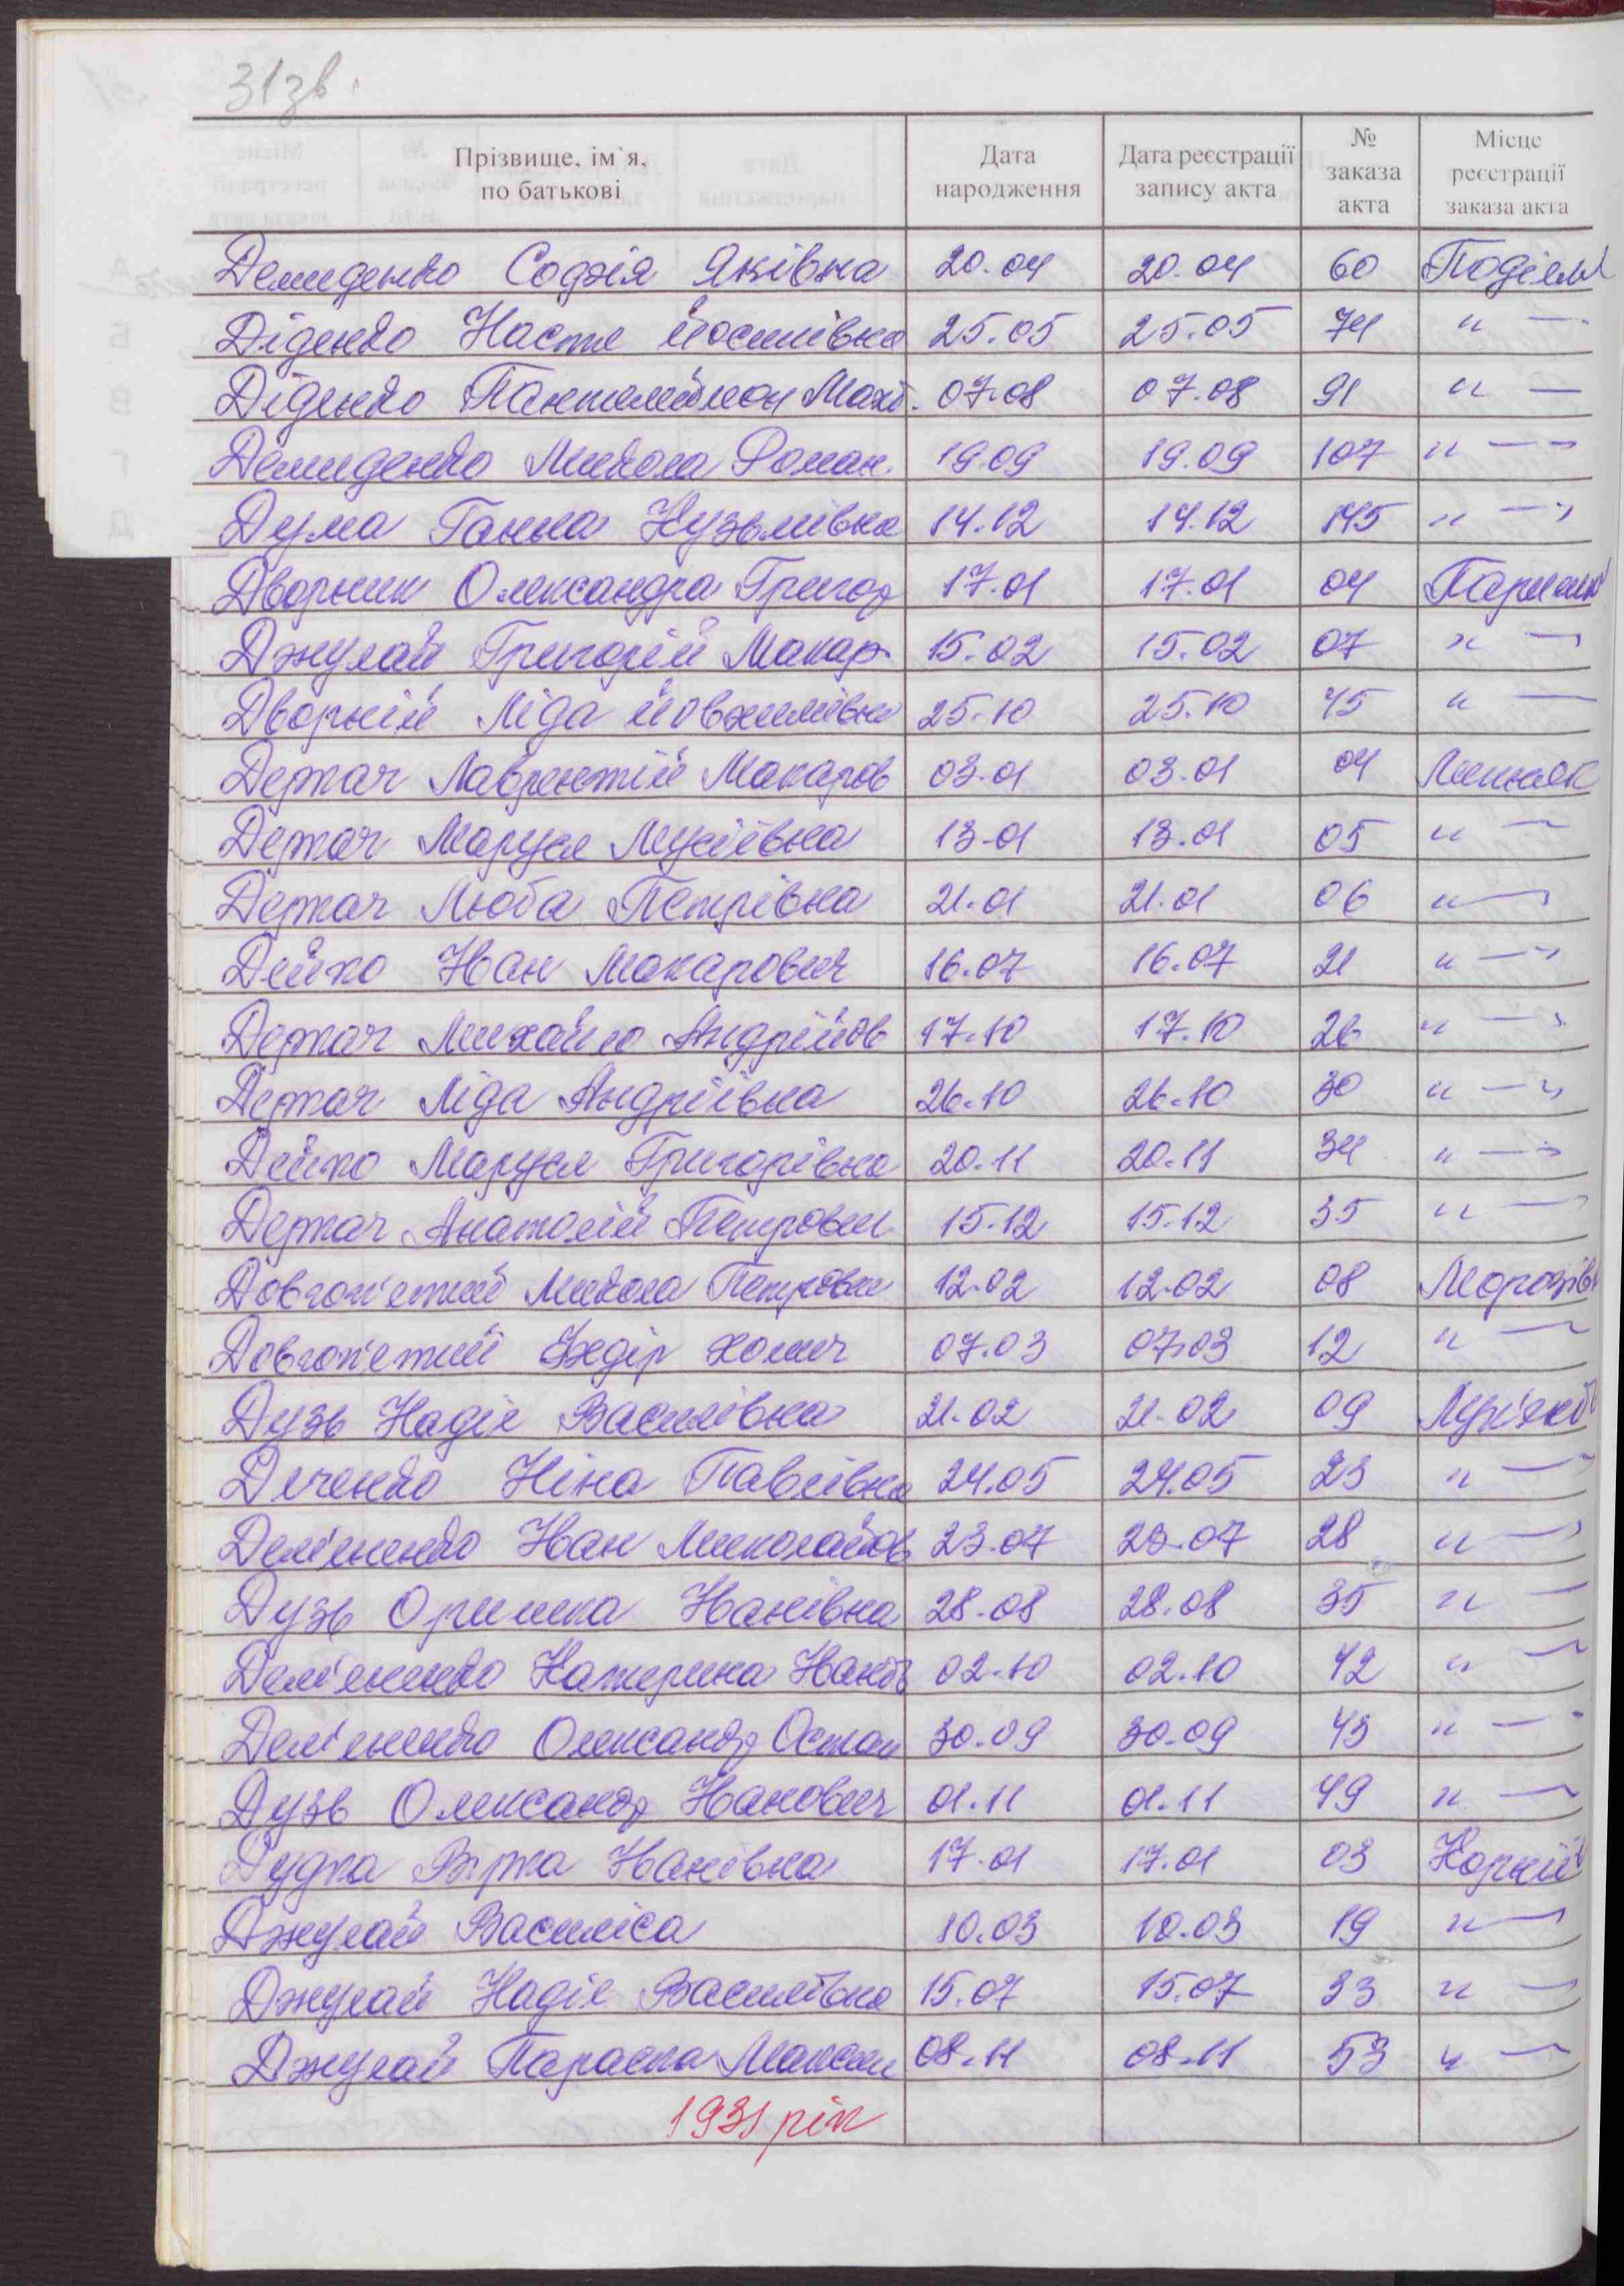 31зв.
Прізвище, ім`я, по батькові | Дата народження | Дата реєстрації запису акта | № заказа акта | Місце реєстрації заказа акта
Демиденко Софія Яківна 20.04 20.04 60
Діденко Настя Йосипівна 25.05 25.05 74 " —
Діденко Пантелеймон 07.08 07.08 91 " —
Демиденко Микола Роман. 19.09 19.09 107 " — "
Дума Ганна Кузьмівна 14.12 14.12 145 " — "
Дворник Олександра Григор 17.01 17.01 04
Джулай Григорій Макар 15.02 15.02 07 " —
Дворній Ліда 25.10 25.10 45 " —
Деркач Лаврентій Макаров 03.01 03.01 04
Деркач Маруся Мусіївна 13.01 13.01 05 " —
Деркач Люба Петрівна 21.01 21.01 06 " —
Дейко Іван Макарович 16.07 16.07 21 " — "
Деркач Михайло Андрійов 17.10 17.10 26 " — "
Деркач Ліда Андріївна 26.10 26.10 30 " — "
Дейко Маруся Григорівна 20.11 20.11 34 " — "
Деркач Анатолій Петрович 15.12 15.12 35 " —
Довгоп'ятий Микола Петрович 12.02 12.02 08 Морозів
Довгоп'ятий Федір Хомич 07.03 07.03 12 " —
Дузь Надія Василівна 21.02 21.02 09
Дяченко Ніна Павлівна 24.05 24.05 23 " —
Дем'яненко Іван Миколайов 23.07 23.07 28 " —
Дузь Оришка Іванівна 28.08 28.08 35 " —
Дем'яненко Катерина Іванів 02.10 02.10 42 " —
Дем'яненко Олександр Остап 30.09 30.09 43 " —
Дузь Олександр Іванович 01.11 01.11 49 " —
Дудка Вірка Іванівна 17.01 17.01 03 Корнії
Джулай Василіса 10.03 10.03 19 " —
Джулай Надія Василівна 15.07 15.07 33 " —
Джулай Параска Максим 08.11 08.11 53 " —
1931 рік